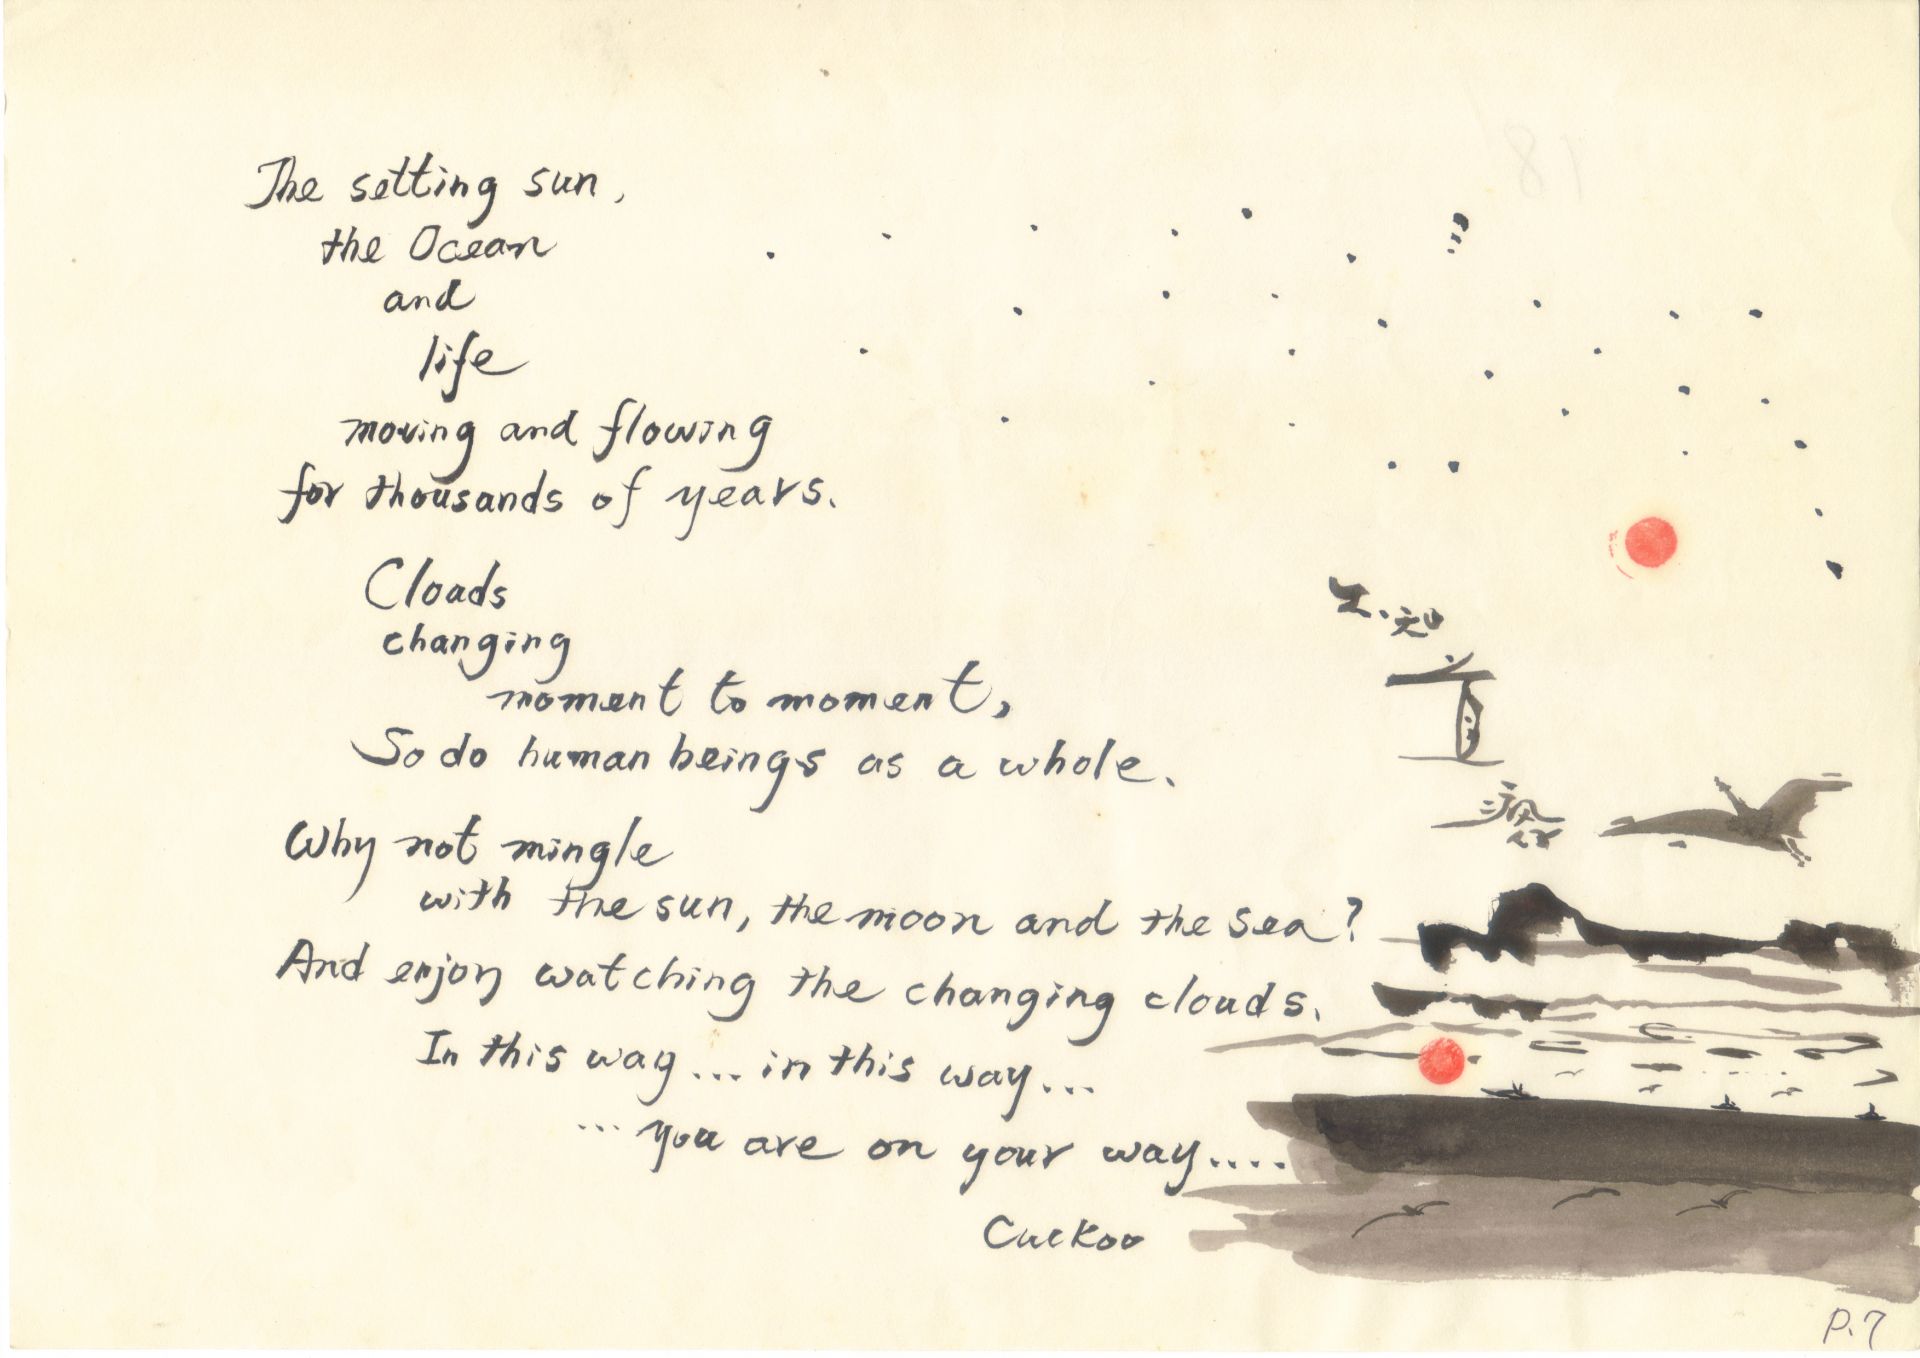 The setting sun,
the Ocean
and
life
moving and flowing
for thousands of years.
Cloads
changing
moment to moment,
So do human beings as a whole.
Why not mingle
with the sun, the moon and the sea?
And enjoy watching the changing clouds.
In this way... in this way...
... you are on your way....
Cuckoo
不知
P.7